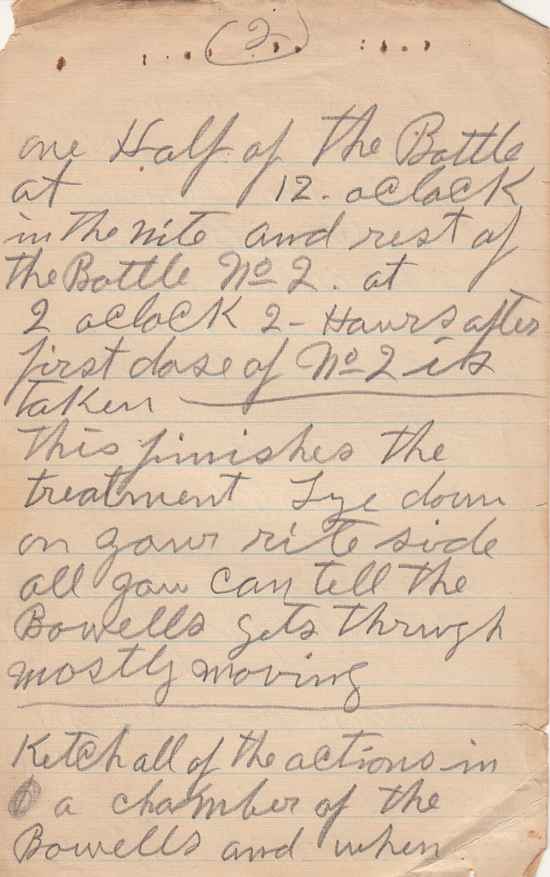 (2)
one Half of the Bottle
at 12. oclock
in the nite and rest of
the Bottle No 2. at
2 oclock 2- Hours after
first dose of No 2 is
taken
This finishes the
treatment Lye down
on your rite side
all you can tell the
Bowells gets thrugh
mostly moving
Ketch all of the actions in
a chamber of the
Bowells and when